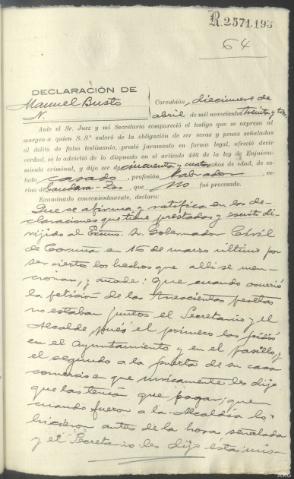 R.2571.193
64
DECLARACIÓN DE
Manuel Busto
N.
Corcubión, diecinueve de
abril de mil novecientos treinta y tres
Ante el Sr. Juez y mi Secretario compareció el testigo que se expresa al
margen a quien S. Sª enteró de la obligación de ser veraz y penas señaladas
al delito de falso testimonio, prestó juramento en forma legal, ofreció decir
verdad, se le advirtió de lo dispuesto en el artículo 446 de la ley de Enjuicia-
miento criminal, y dijo ser de cincuenta y cuatro años de edad, de es-
tado casado, profesión labrador
que no fué procesado.
Examinado convenientemente, declara:
Que se afirma y ratifica en las de-
claraciones que tiene prestadas y escrito di-
rijido al Excmo. Sr. Gobernador Civil
de Coruña en 15 de marzo último por
ser cierto los hechos que allí se men-
cionan, y añade: Que cuando ocurrió
la petición de las trescientas pesetas
no estaban juntos el Secretario y el
Alcalde pués el primero las pidió
en el Ayuntamiento y en el pasillo,
el segundo a la puerta de su casa
comercio en que unicamente les dijo
que las tenía que pagar; que
cuando fueron a la Alcaldía lo
hicieron antes de la hora señalada
y el Secretario les dijo